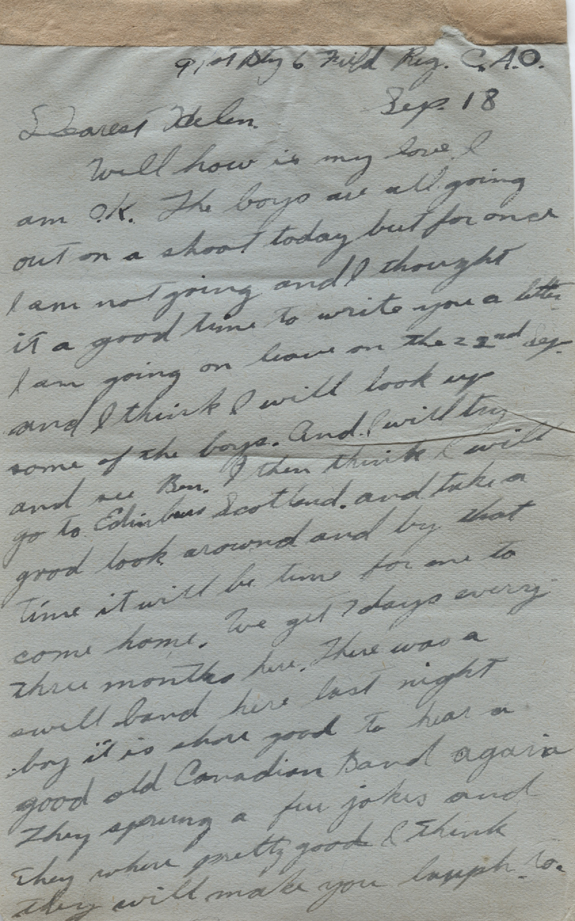 91st Bty 6 Field Reg. C.A.O.
Sep. 18
Dearest Helen.
Will how is my love. I
am O.K. The boys are all going
out on a shoot today but for once
I am not going and I thought
it a good time to write you a letter
I am going on leave on the 22nd Sep.
and I think I will look up
some of the boys. And I will try
and see Ben. I then think I will
go to Scotland. and take a
good look around and by that
time it will be time for me to
come home. We get 7 days every
three months here. There was a
swell band here last night
boy it is shore good to hear a
good old Canadian Band again
They sprung a few jokes and
they where pretty good I think
they will make you laugh to.